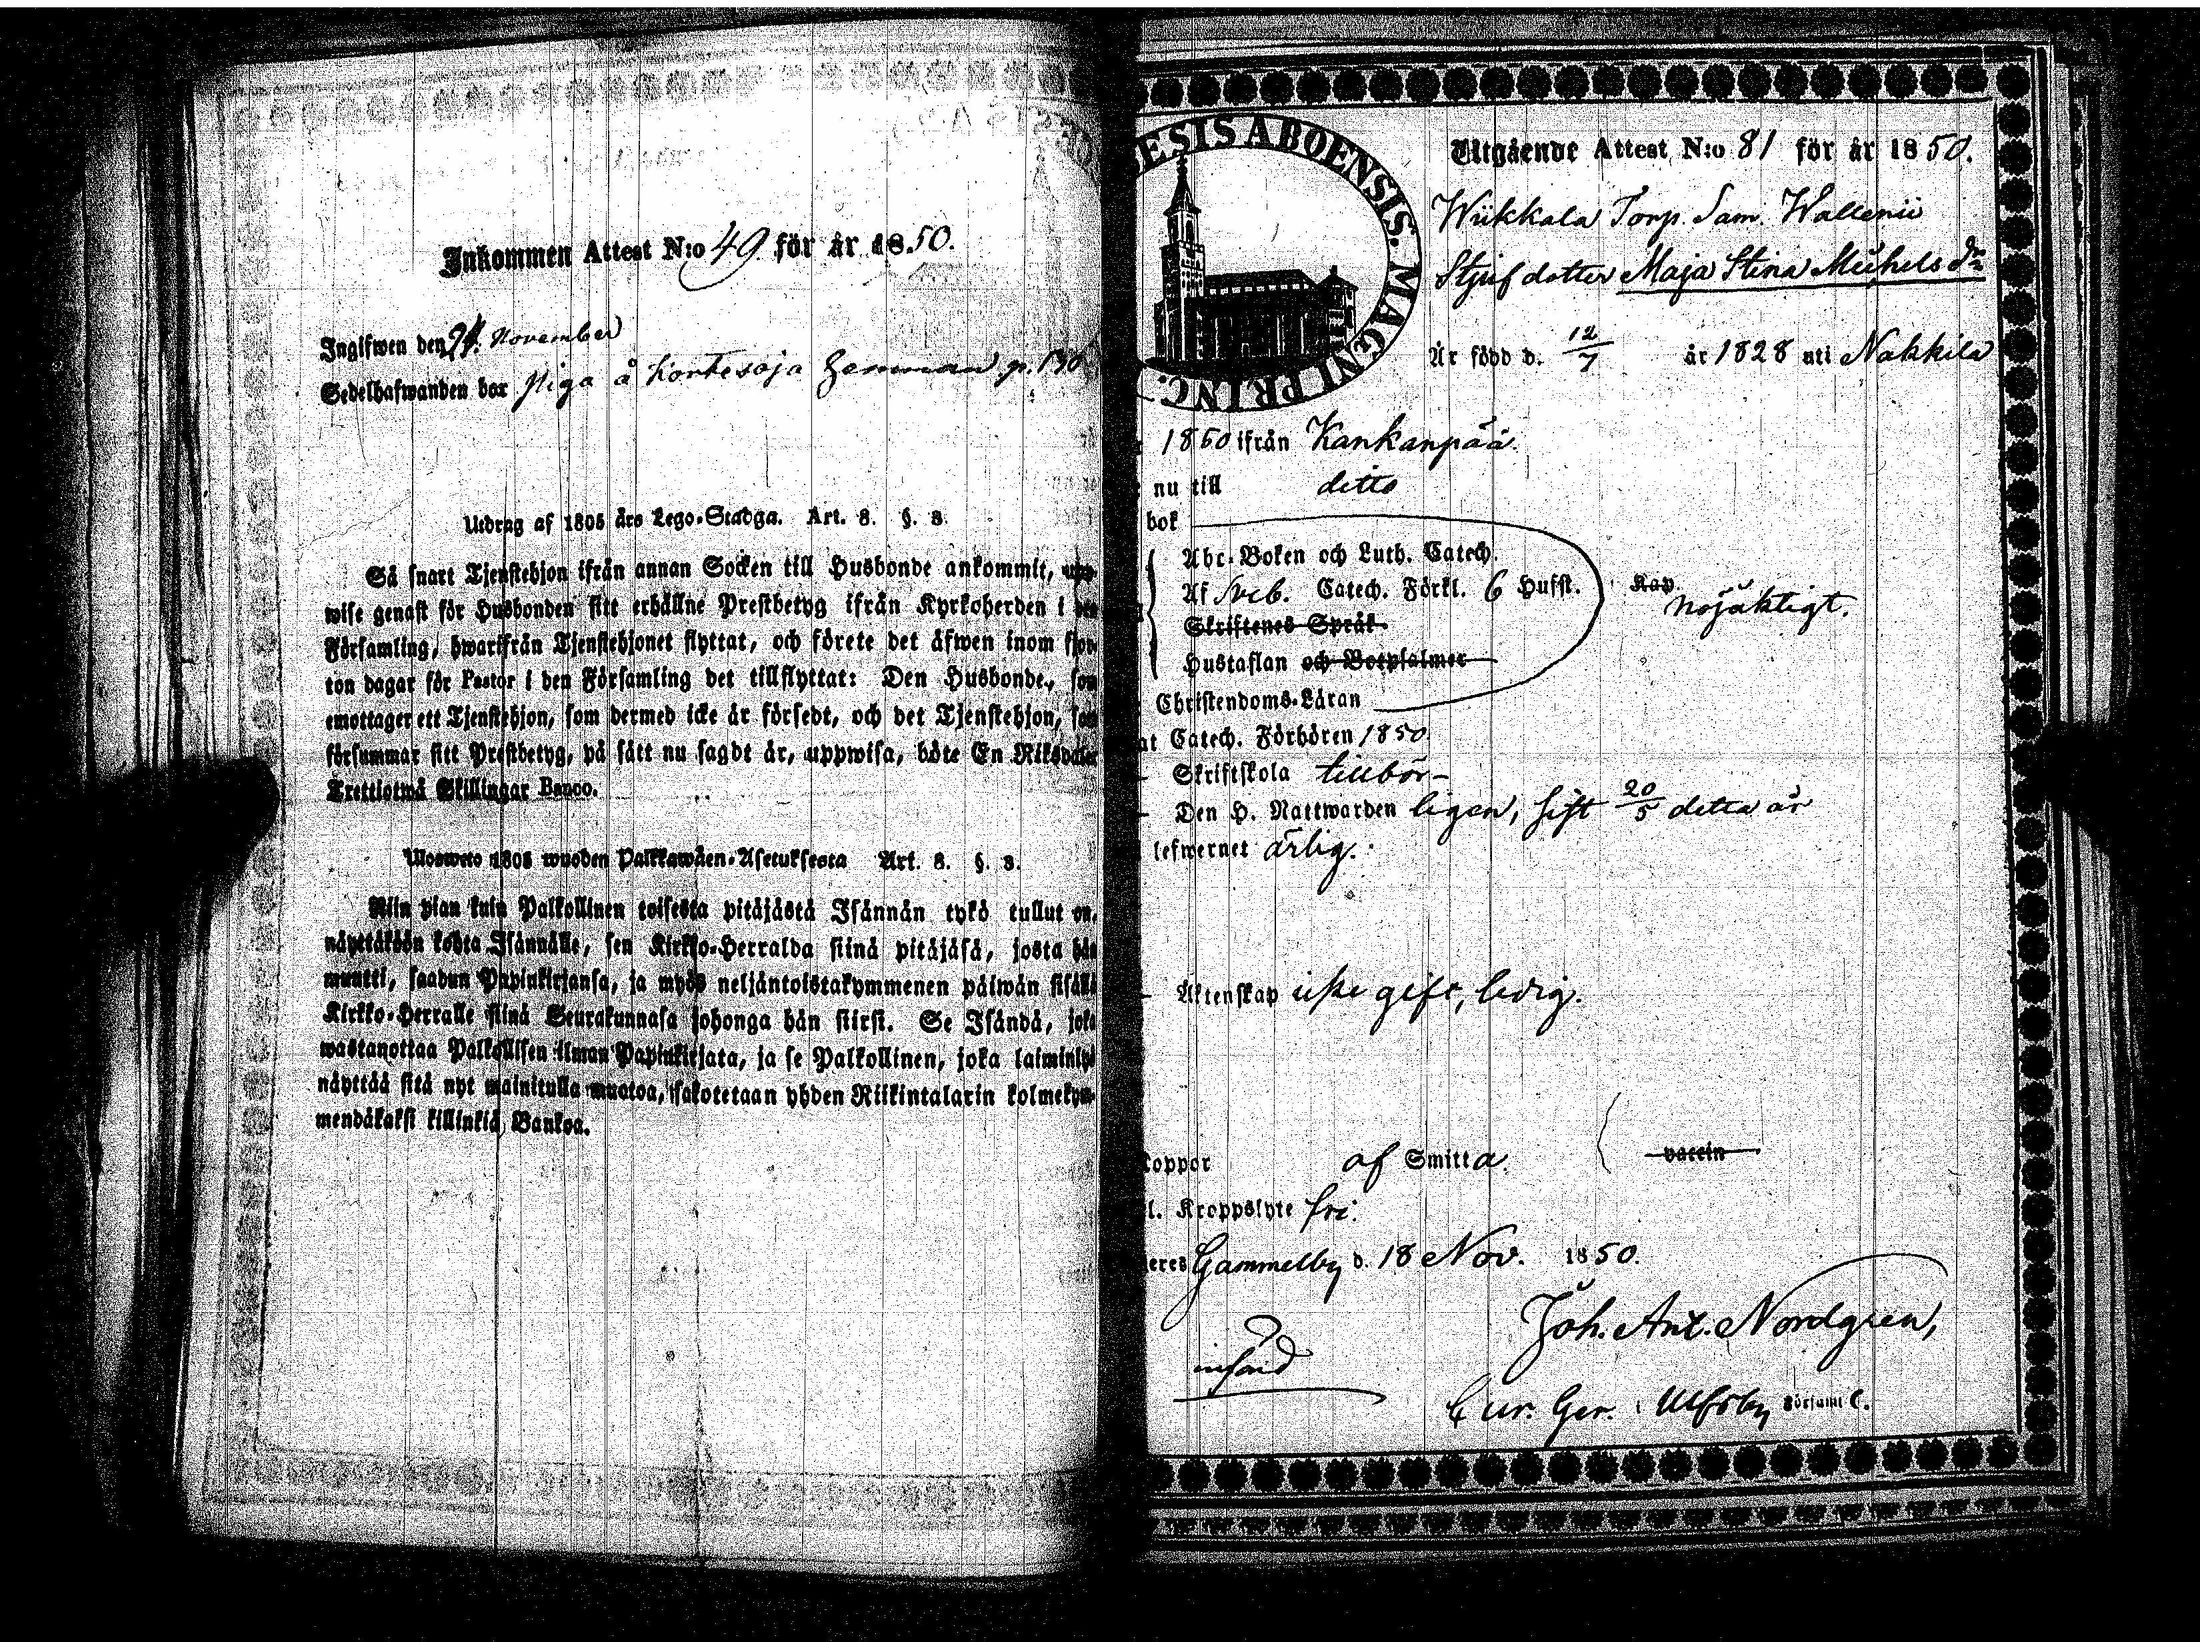 Inkommen Attest N:o 49 för år 18.50.
Ingifwen den 24. November
Sedelhafwanden bor piga å Kortesoja p. 190
Utdrag af 1805 års Lego-Stadga. Art. 8. §. 3.
Så snart Tjenstehjon ifrån annan Socken till Husbonde ankommit, upp-
wise genast för Husbonden sitt erhållne Prestbetyg ifrån Kyrkoherden i den
Församling, hwarifrån Tjenstehjonet flyttat, och förete det äfwen inom fjor-
ton dagar för Pastor i den Församling det tillflyttat: Den Husbonde, som
emottager ett Tjenstehjon, som dermed icke är försedt, och det Tjenstehjon, som
försummar sitt Prestbetyg, på sätt nu sagdt är, uppwisa, böte En Riksdaler
Trettiotwå Skillingar Banco.
Ulosweto 1805 wuoden Palkkawäen-Asetuksesta Art. 8. §. 3.
Niin pian kuin Palkollinen toisesta pitäjästä Isännän tykö tullut on,
näyttäköön kohta Isännälle, sen Kirkko-Herralda siinä pitäjäsä, josta hän
muutti, saadun Papinkirjansa, ja myös neljäntoistakymmenen päiwän sisällä
Kirkko-Herralle siinä Seurakunnasa johonga hän siirsi. Se Isändä, joka
wastanottaa Palkollisen ilman Papinkirjata, ja se Palkollinen, joka laiminlyö
näyttää sitä nyt mainitulla muotoa, sakotetaan yhden Riikintalarin kolmekym-
mendäkaksi killinkiä Bankoa.
ESIS ABOENSIS. MAGNI PRINC.
Utgående Attest N:o 81 för år 1850.
Wiikkala Torp. Sam. Wallenii
Stjuf dotter Maja Stina Michels dr
Är född d. 12/7 år 1828 uti Nakkila
1850 ifrån Kankanpää.
nu till ditto
bok
Abc-Boken och Luth. Catech.
Af Sveb. Catech. Förkl. 6 Hufst. Kap. nöjaktigt.
Skriftenes Språk
Hustaflan och Botpsalmer
Christendoms-Läran
at Catech. Förhören 1850.
Skriftskola tillbör-
Den H. Nattwarden ligen, sist 20/5 detta år
lefwernet ärlig.
Äktenskap icke gift, ledig.
koppor af Smitta. vaccin
l. Kroppslyte fri.
eres Gammelby d. 18 Nov. 1850.
Joh. Ant. Nordgren,
Cur. Ger. i Ulfsby Församl.